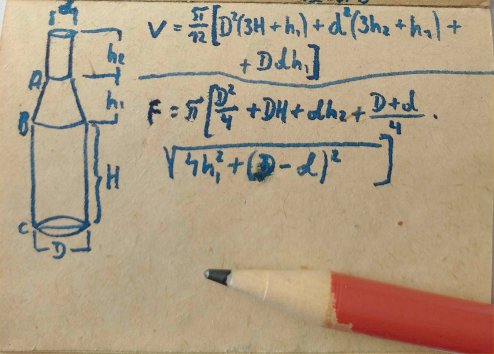 d
h₂
A
h₁
B
H
C
D
V = π/12 [D²(3H + h₁) + d²(3h₂ + h₁) +
+ Ddh₁]
F = π [D²/4 + DH + dh₂ + (D + d)/4 ·
√(4h₁² + (D - d)²)]